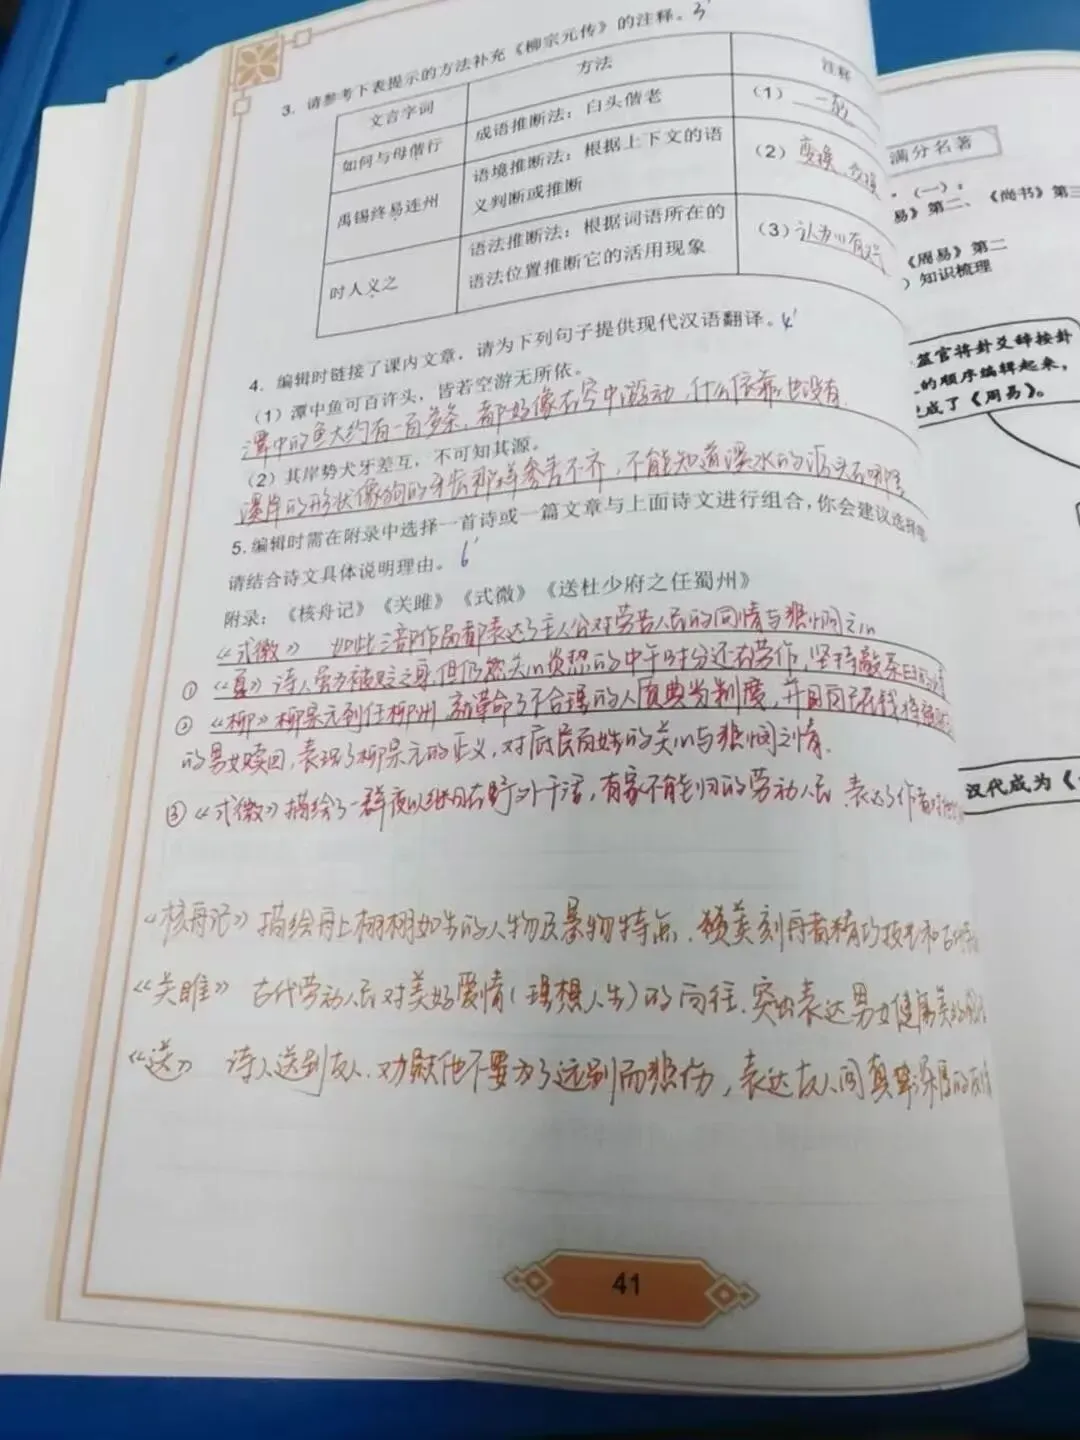 3. 请参考下表提示的方法补充《柳宗元传》的注释。3'
文言字词 方法 注释
如何与母偕行 成语推断法：白头偕老 (1) 一起
禹锡终易连州 语境推断法：根据上下文的语义判断或推断 (2) 变换 交换
时人义之 语法推断法：根据词语所在的语法位置推断它的活用现象 (3) 认为
4. 编辑时链接了课内文章，请为下列句子提供现代汉语翻译。4'
(1) 潭中鱼可百许头，皆若空游无所依。
潭中的鱼大约有一百多条，都好像在空中游动，什么依靠也没有
(2) 其岸势犬牙差互，不可知其源。
溪岸的形状像狗的牙齿那样参差不齐，不能知道溪水的源头在哪里
5. 编辑时需在附录中选择一首诗或一篇文章与上面诗文进行组合，你会建议选择
请结合诗文具体说明理由。6'
附录：《核舟记》《关雎》《式微》《送杜少府之任蜀州》
《式微》 如此三部作品都表达了主人公对劳苦人民的同情与悲悯之心
① 《夏》诗人虽为被贬之身，但仍然关心炎热的中午时分还在劳作，坚持
② 《柳》柳宗元到任柳州，就革命了不合理的人质典当制度，并
的男女赎回，表现了柳宗元的正义，对底民百姓的关心与悲悯之情。
③ 《式微》描绘了一群夜以继日在野外干活，有家不能归的劳动人民 表达了作者
《核舟记》描绘舟上栩栩如生的人物及景物特点，赞美刻舟者精巧技艺和
《关雎》 古代劳动人民对美好爱情（理想人生）的向往，突出表达男女健康美
《送》 诗人送别友人，劝慰他不要为了远别而悲伤，表达友人间真挚深厚的友情
41
满分名著
（一）：
易》第二、《尚书》第三
《周易》第二
）知识梳理
筮官将卦爻辞按卦
的顺序编辑起来，
成了《周易》。
汉代成为《